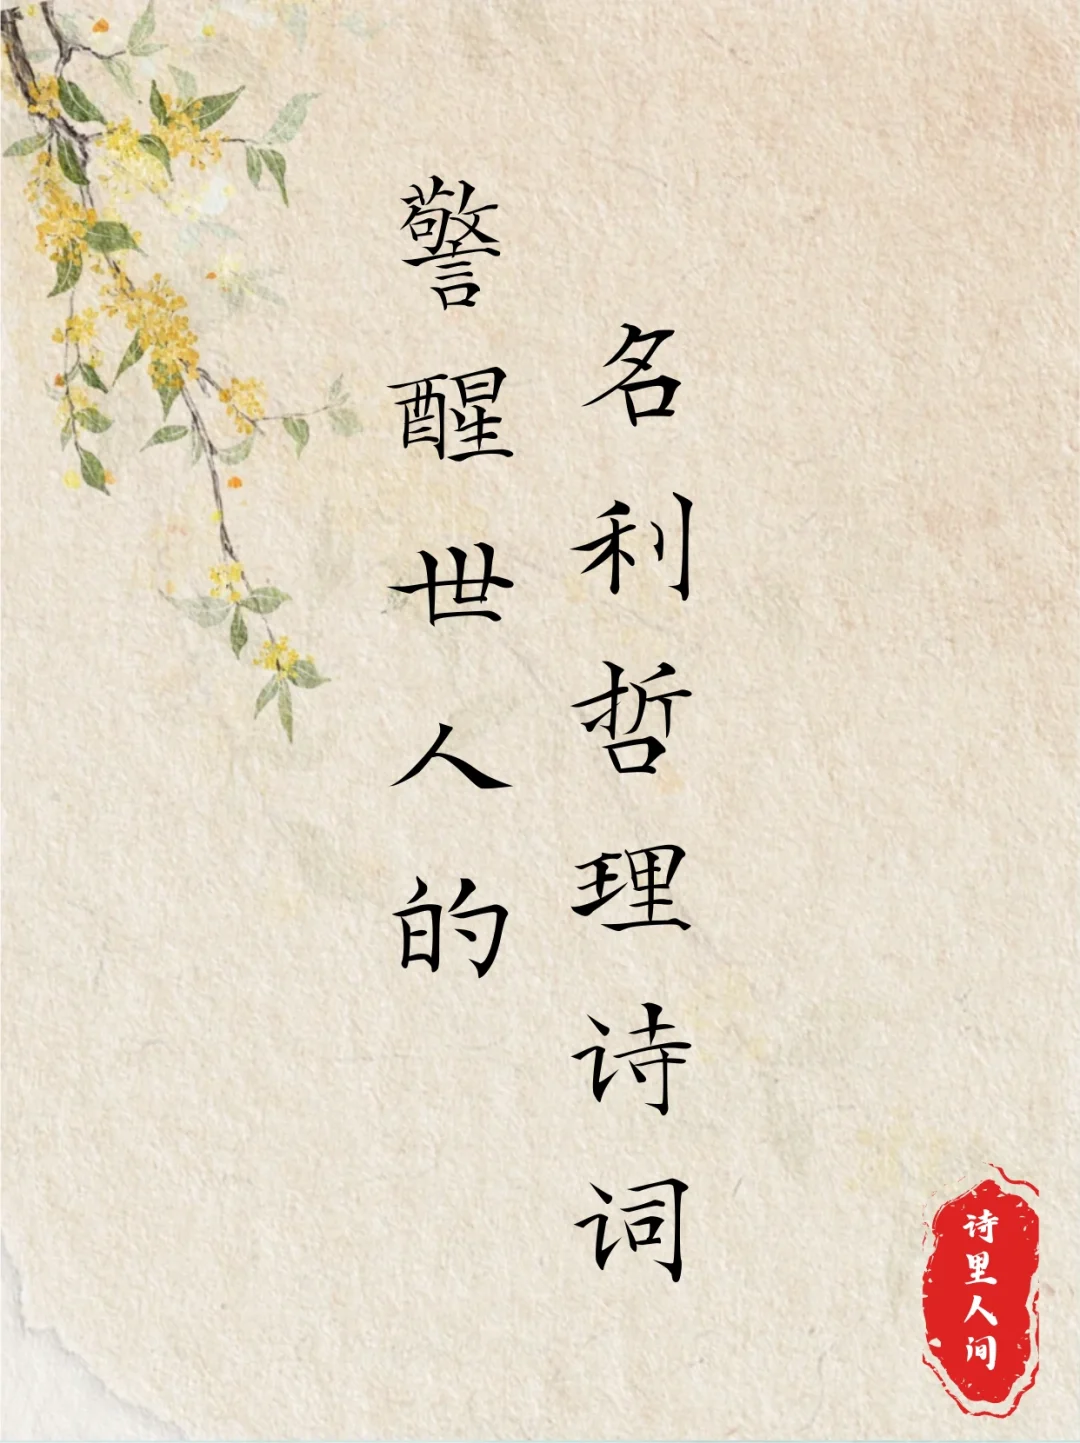 警醒世人的
名利哲理诗词
诗里人间